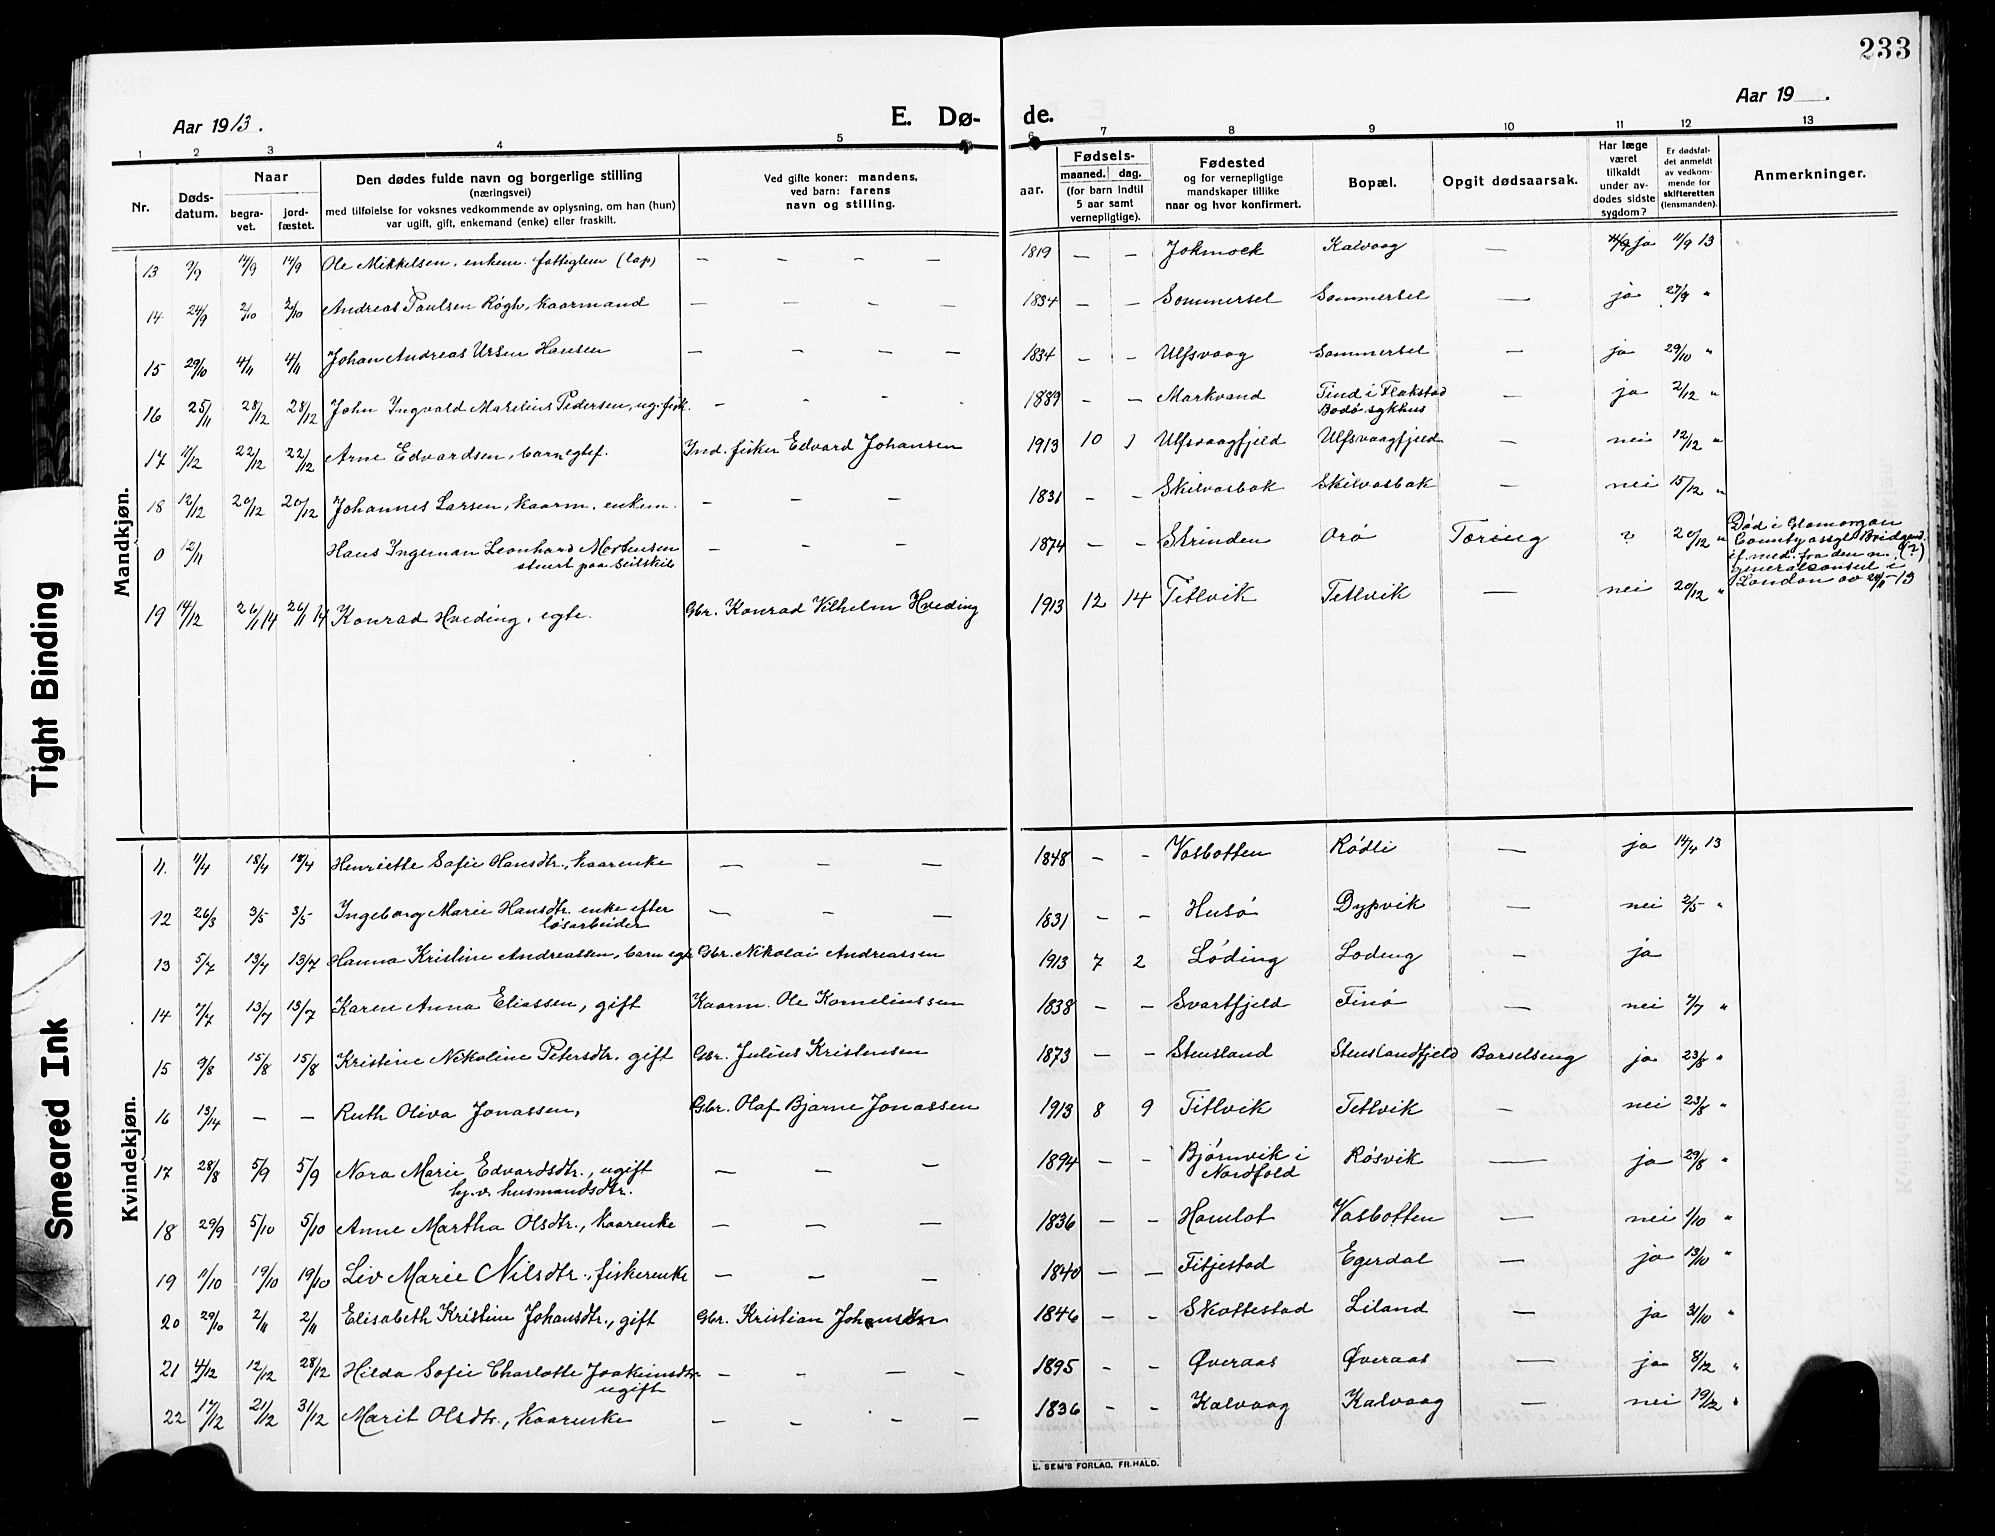 233
Aar 1913.
E. Dø-
de.
Aar 19 .
1 2 3 4 5 6 7 8 9 10 11 12 13
Nr.
Døds-
datum.
Naar
begra-
vet.
jord-
fæstet.
Den dødes fulde navn og borgerlige stilling
(næringsvei)
med tilføielse for voksnes vedkommende av oplysning, om han (hun)
var ugift, gift, enkemand (enke) eller fraskilt.
Ved gifte koner: mandens,
ved barn: farens
navn og stilling.
aar.
Fødsels-
maaned. dag.
(for barn indtil
5 aar samt
vernepligtige).
Fødested
og for vernepligtige
mandskaper tillike
naar og hvor konfirmert.
Bopæl.
Opgit dødsaarsak.
Har læge
været
tilkaldt
under av-
dødes sidste
sygdom?
Er dødsfal-
det anmeldt
av vedkom-
mende for
skifteretten
(lensmanden).
Anmerkninger.
Mandkjøn.
13 9/9 14/9 14/9 Ole Mikkelsen, enkem. fattiglem (lap) — — — — 1819 — — Jokmock Kalvaag — ja 11/9 13
14 24/9 2/10 2/10 Andreas Paulsen Røgh, kaarmand — — — — 1834 — — Sommersel Sommersel — ja 27/9 "
15 29/10 4/11 4/11 Johan Andreas Ursin Hansen — — — — 1834 — — Ulfsvaag Sommersel — ja 29/10 "
16 25/11 28/12 28/12 John Ingvald Marelius Pedersen, ug. fisk. — - - - 1889 — — Markvand Tind i Flakstad
Bodø sykhus ja 2/12 "
17 11/12 22/12 22/12 Arne Edvardsen, barn egtef. Ind. fisker Edvard Johansen 1913 10 1 Ulfsvaagfjeld Ulfsvaagfjeld — nei 12/12 "
18 12/12 20/12 20/12 Johannes Larsen, kaarm, enkem. — — — 1831 — — Skilvasbak Skilvasbak — nei 15/12 "
0 12/11 Hans Ingeman Leonhard Mortensen
stuert paa seilskib — — — 1874 — — Strinden Orø Tæring ? 20/12 " Død i Glamorgan
County assyl Bridgend
if. med. fra den n. (?)
generalkonsul i
London av 24/11-13
19 14/12 26/1 14 26/1 14 Konrad Hveding, egte. Gbr. Konrad Vilhelm Hveding 1913 12 14 Tetlvik Tetlvik — nei 20/12 "
Kvindekjøn.
11. 11/4 18/4 18/4 Henriette Sofie Hansdtr., kaarenke — — — 1848 — — Vasbotten Rødli — ja 14/4 13
12 26/3 3/5 3/5 Ingeborg Marie Hansdtr. enke efter
løsarbeider — — — 1831 — — Husø Dypvik — nei 2/5 "
13 5/7 13/7 13/7 Hanna Kristine Andreassen, barn egt Gbr. Nikolai Andreassen 1913 7 2 Løding Løding — ja
14 7/7 13/7 13/7 Karen Anna Eliassen, gift Kaarm. Ole Korneliussen 1838 — — Svartfjeld Finø — nei 7/7 "
15 9/8 15/8 15/8 Kristine Nikoline Petersdtr. gift Gbr. Julius Kristensen 1873 — — Stensland Stenslandfjeld Barselseng ja 23/8 "
16 13/14 — — Ruth Oliva Jonassen, Gbr. Olaf Bjarne Jonassen 1913 8 9 Titlvik Tetlvik — nei 23/8 "
17 28/8 5/9 5/9 Nora Marie Edvardsdtr., ugift
hj.v. husmandsdtr. — — — 1894 — — Bjørnvik i
Nordfold Røsvik — ja 29/8 "
18 29/9 5/10 5/10 Anne Martha Olsdtr., kaarenke — — — 1836 — — Hamlot Vasbotten — nei 1/10 "
19 11/10 19/10 19/10 Liv Marie Nilsdtr., fiskerenke — — — 1840 — — Fitjestad Egerdal — ja 13/10 "
20 29/10 2/11 2/11 Elisabeth Kristine Johansdtr., gift Gbr. Kristian Johansen 1846 — — Skottestad Liland — ja 31/10 "
21 4/12 12/12 28/12 Hilda Sofie Charlotte Joakimsdtr
ugift — — — - 1895 — — Øveraas Øveraas — ja 8/12 "
22 17/12 21/12 31/12 Marit Olsdtr., kaarenke — - — — 1836 — — Kalvaag Kalvaag — nei 19/12 "
E. SEM'S FORLAG, FR.HALD.
Tight Binding
Smeared Ink